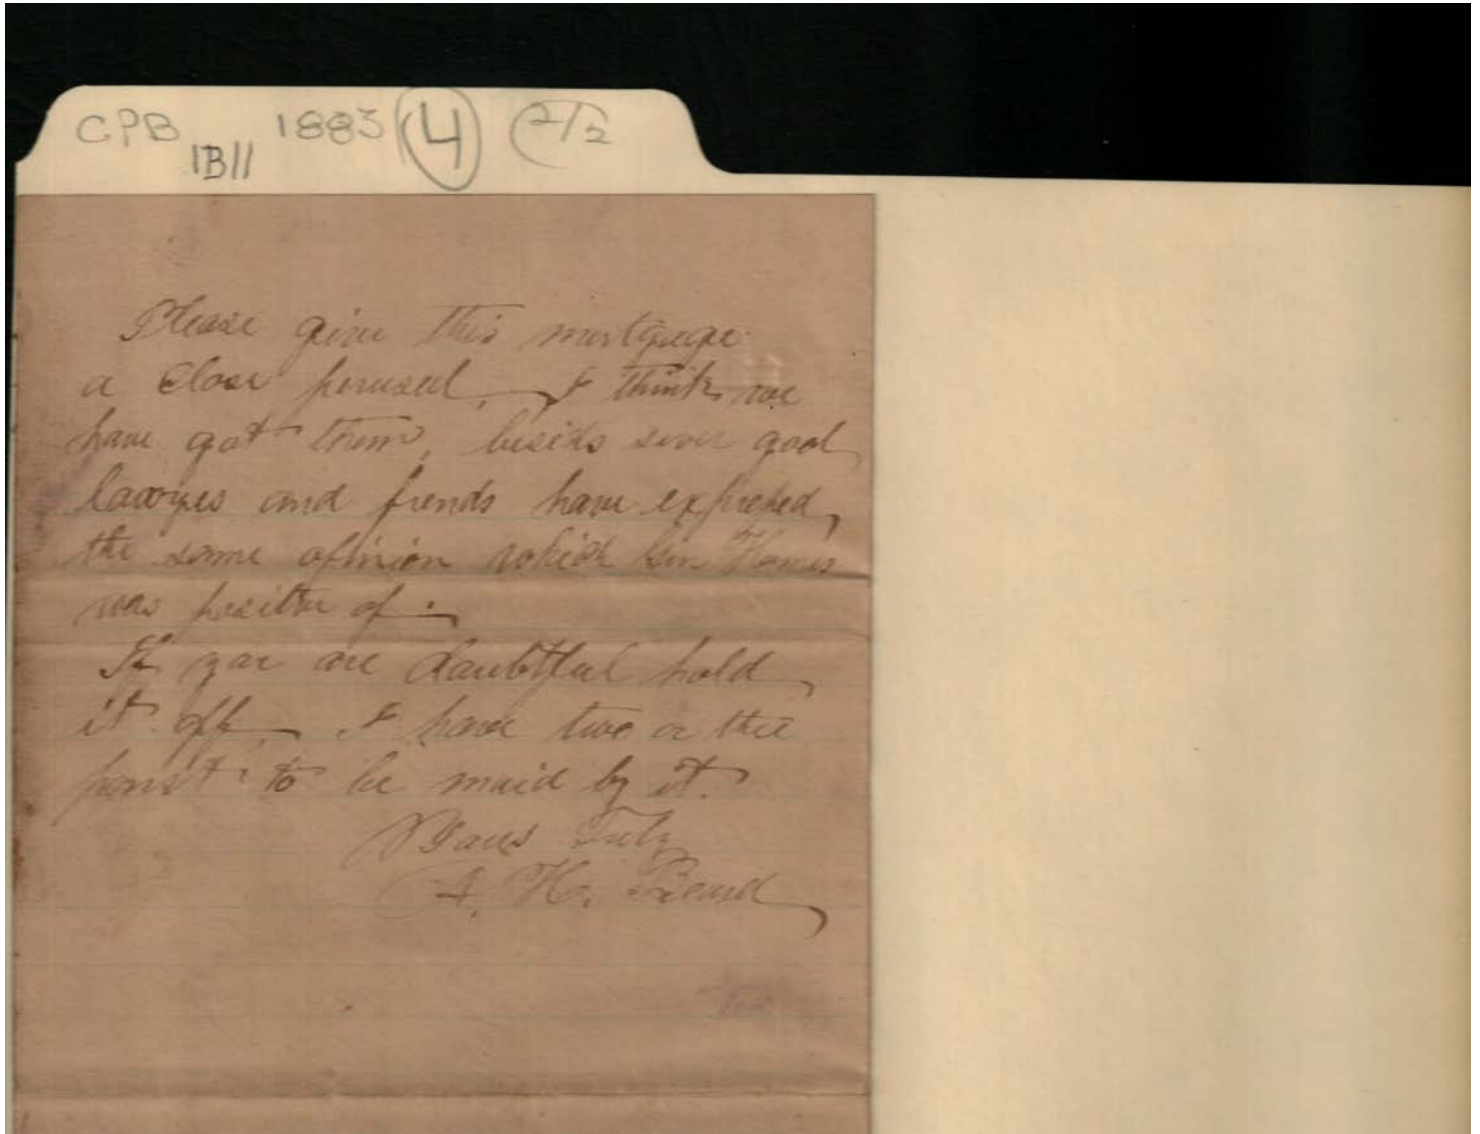 CPB 1883 4 2/2
1B11
Please give this mortgage
a close perusal, I think we
have got them, besids sever good
lawyes and frends have expressed
the same opinion which
was positive of.
If you are doubtful hold
it off I have two or thee
to be maid by it.
Yours Truly
A. H. Beard